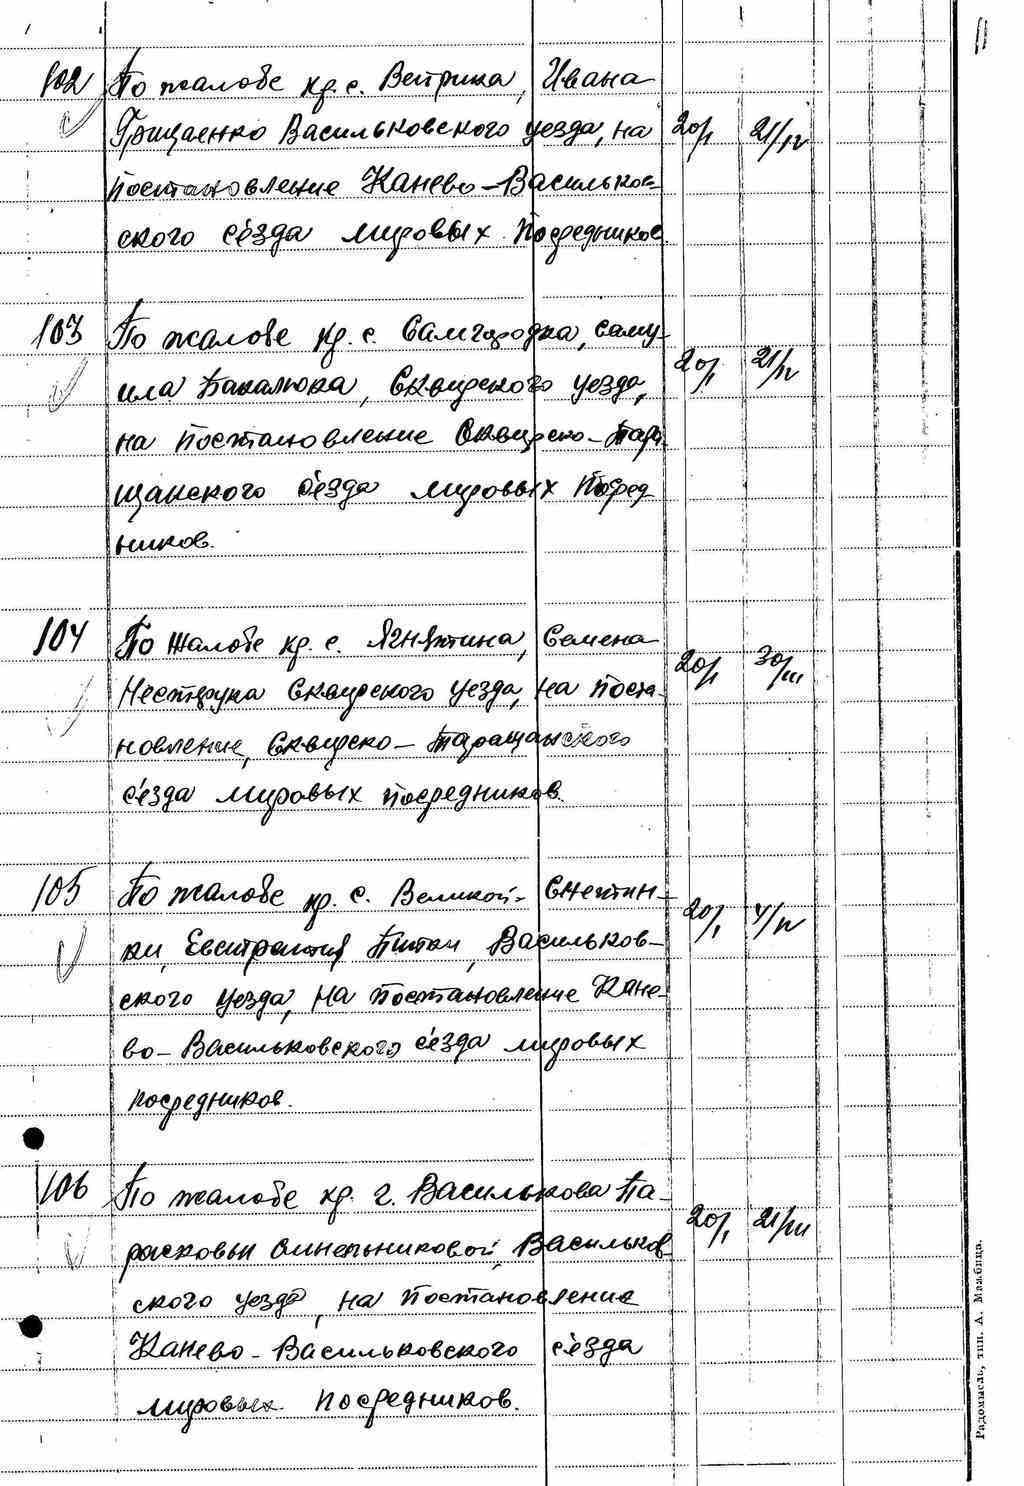 11
102 По жалобе кр. с. Ветрика, Ивана
Грищенко Васильковского уезда, на 20/I 21/IV
постановление Канево-Васильков-
ского сьезда мировых Посредников.
103 По жалобе кр. с. Самгородка, Саму-
ила Бакалюка, Сквирского уезда, 20/I 21/IV
на постановление Сквирско-Тара-
щанского сьезда мировых Посред
ников.
104 По жалобе кр. с. Ягнятина, Семена
Нестерука Сквирского уезда, на поста- 20/I 30/III
новление, Сквирско-Таращанского
сьезда мировых посредников.
105 По жалобе кр. с. Великой-Снетин-
ки, Евстратия Питки, Васильков- 20/I 4/IV
ского уезда, на постановление Кане-
во-Васильковского сьезда мировых
посредников.
106 По жалобе кр. г. Василькова Па-
расковьи Омельниковой, Васильков- 20/I 21/III
ского уезда, на постановление
Канево-Васильковского сьезда
мировых посредников.
Радомысль, тип. А. Мажбица.